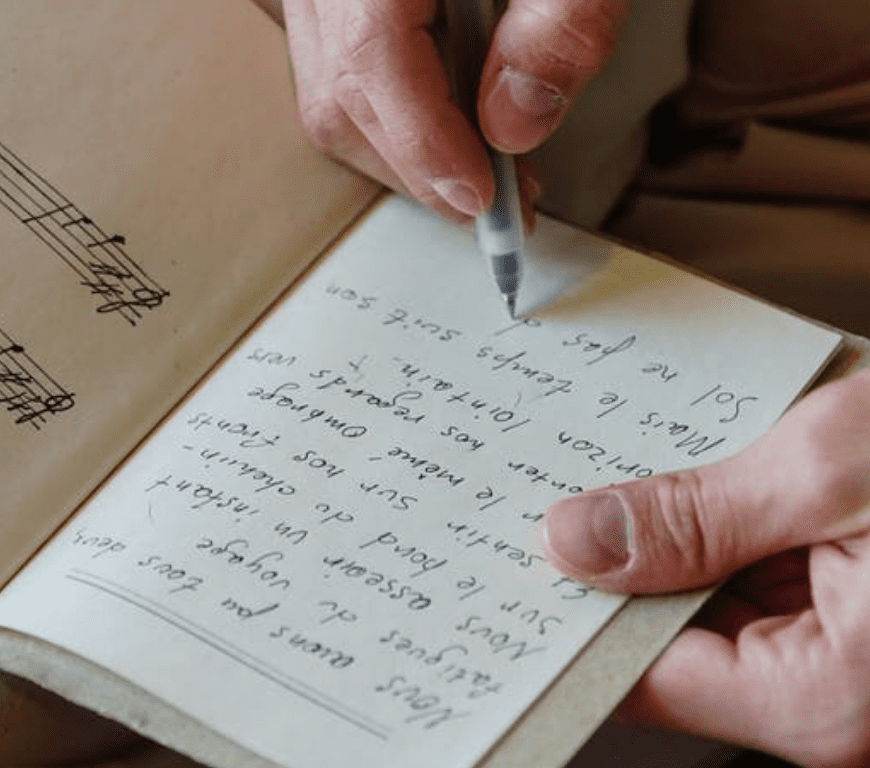 Nous avons pu tous deux,
fatigues du voyage
Nous asseoir un instant
Sur le bord du chemin-
sentir sur nos fronts
le même ombrage
nos regards vers
lointain.
Mais le temps suit son
Sol ne pas